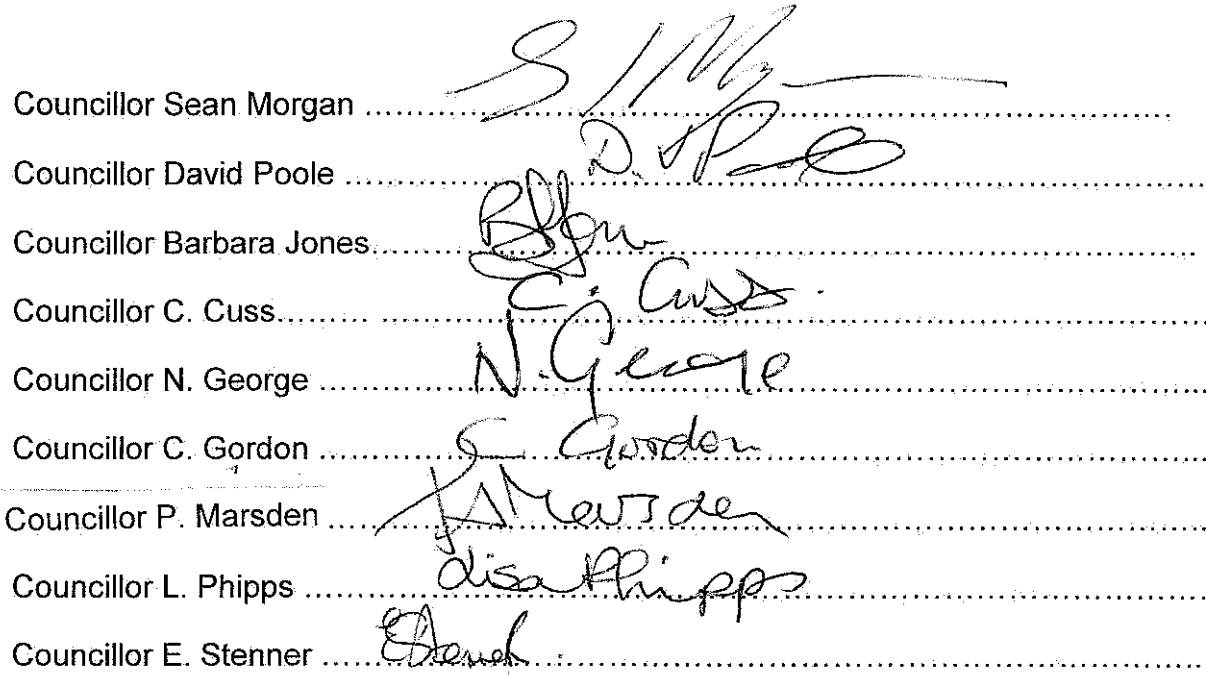 Councillor Sean Morgan ..... S J M
Councillor David Poole ..... D. J P
Councillor Barbara Jones ..... B
Councillor C. Cuss ..... C. Cuss.
Councillor N. George ..... N. George
Councillor C. Gordon ..... C Gordon
Councillor P. Marsden ..... Marsden
Councillor L. Phipps ..... Lisa Phipps
Councillor E. Stenner ..... EStenner